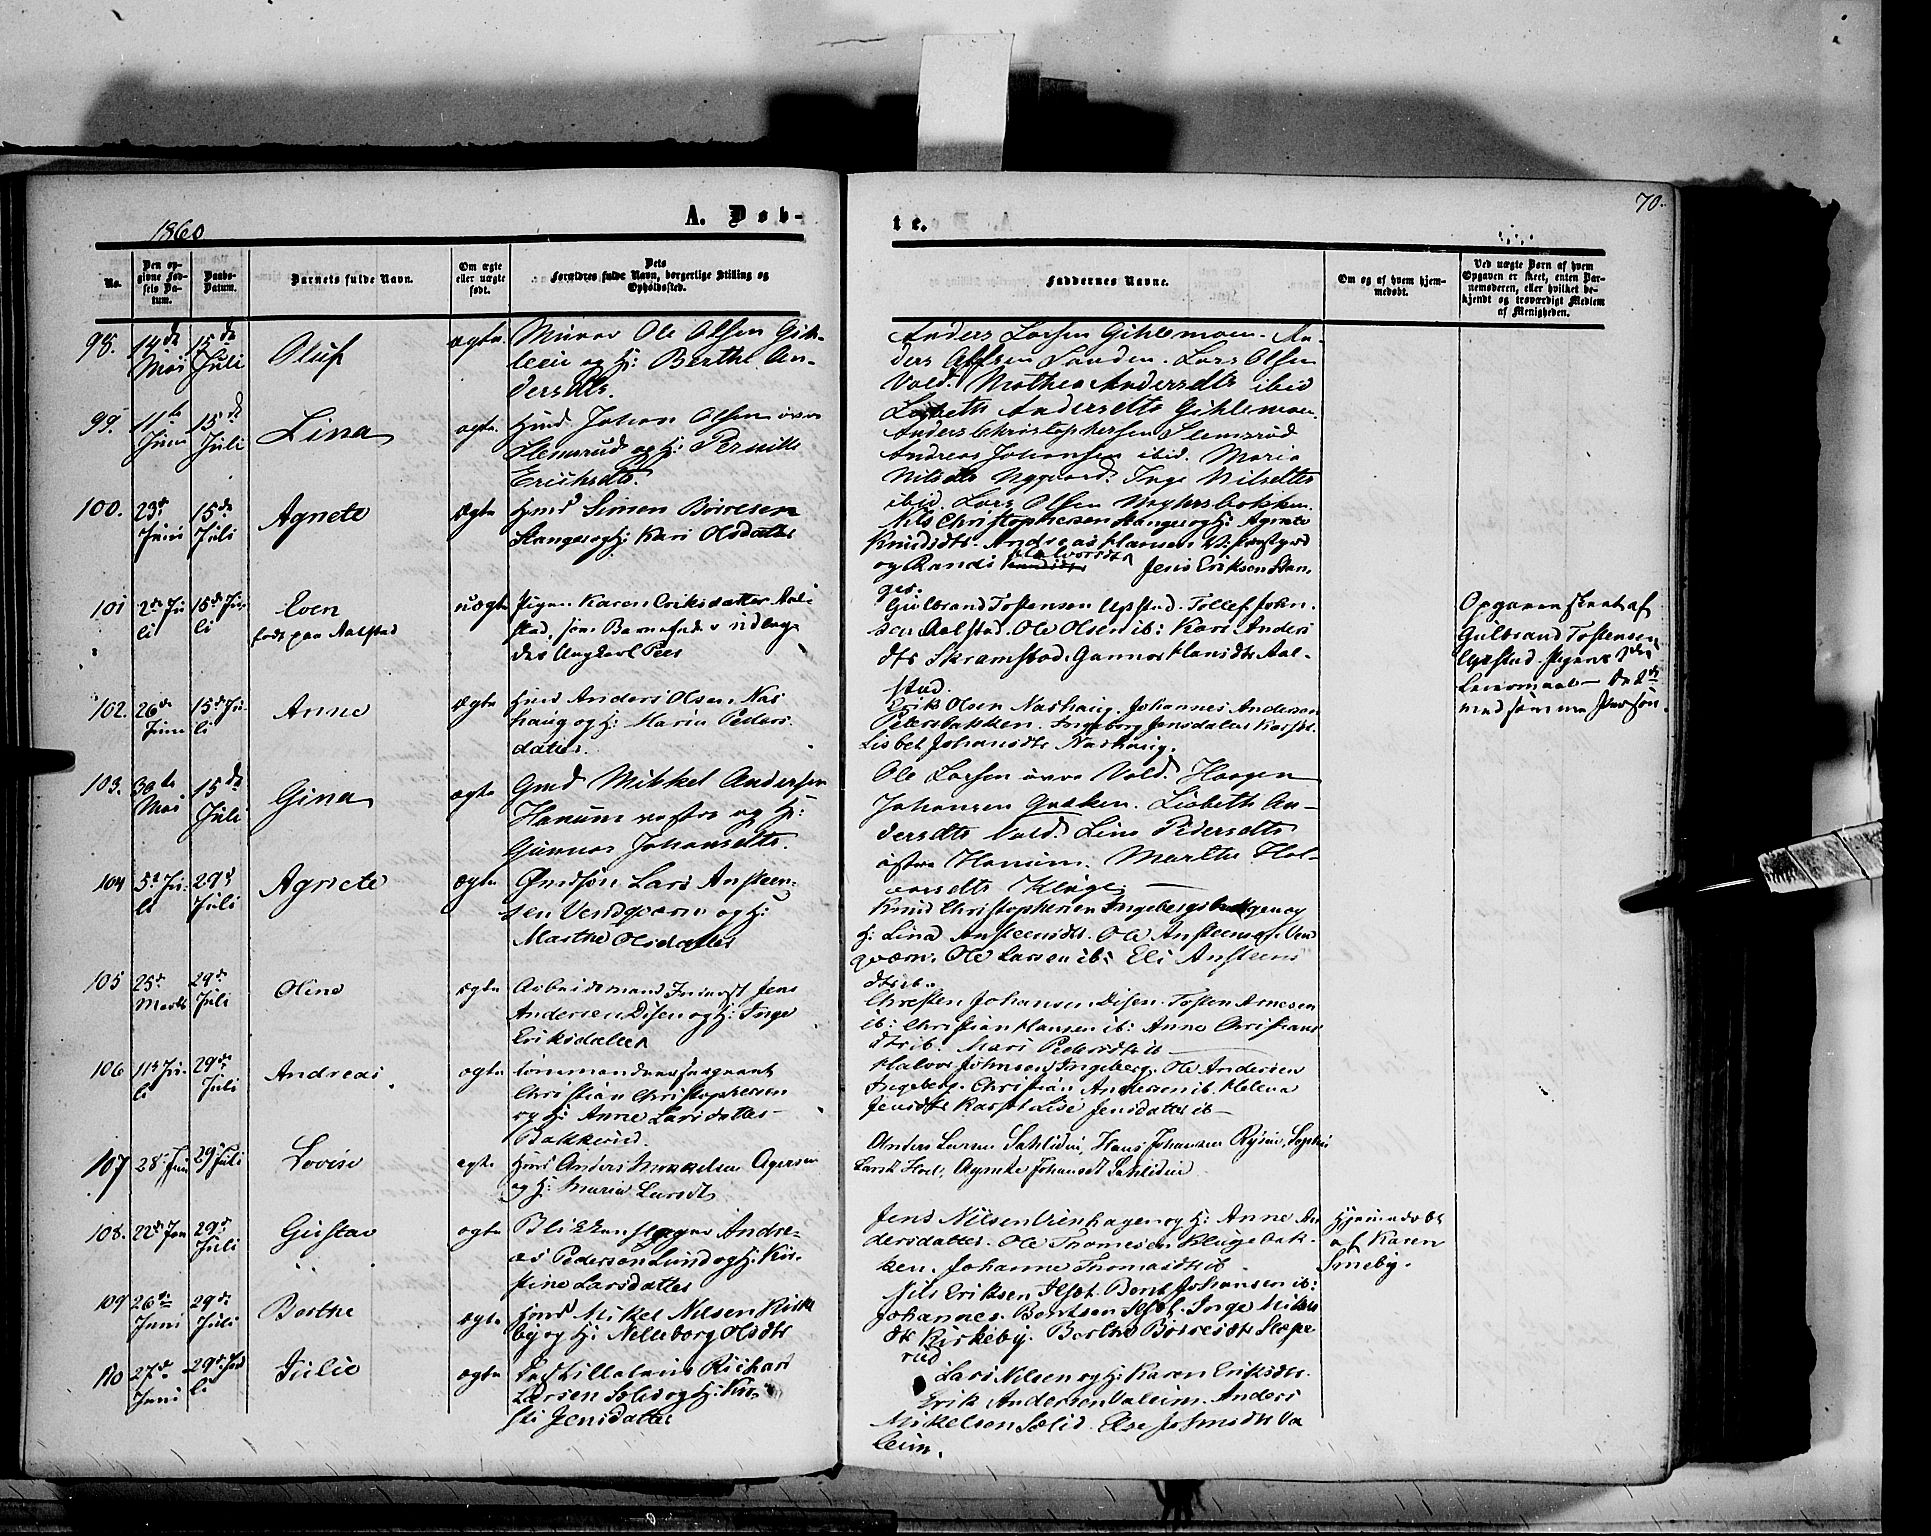 1860
A. Døb-
te.
70.
No.
Den op-
givne Fød-
sels Da-
tum.
Daabs-
Datum.
Barnets fulde Navn.
Om ægte
eller uægte
født.
Dets
Forældres fulde Navn, borgerlige Stilling og
Opholdssted.
Faddernes Navne.
Om og af hvem hjem-
medøbt.
Ved uægte Børn af hvem
Opgaven er skeet, enten Bar-
nemoderen, eller hvilket be-
kjendt og troværdigt Medlem
af Menigheden.
98.
14de
Mai
15de
Juli
Oluf
ægte
Murer Ole Olsen Gih-
leie og H: Berthe An-
dersdtr.
Anders Larsen Gihlemoen. An-
ders Olsen Sanden. Lars Olsen
Vold. Mathea Andersdtr ibid
Lisbeth Andersdtr Gihlemoen.
99.
11te
Juni
15de
Juli
Lina
ægte
Hmd Johan Olsen øvre
Slemsrud og H: Pernille
Eriksdtr.
Anders Christophersen Slemsrød
Andreas Johansen ibid. Maria
Nilsdtr Nygaard. Inge Nilsdtr
ibid. Lars Olsen
100.
23de
Juni
15de
Juli
Agnete
ægte
Hmd Simen Børresen
Stange og H: Kari Olsdatter
Nils Christophersen Stange og H: Agnete
Knudsdtr. Andreas Hansen
og Randi Knudsdtr Halvorsdtr Jens Eriksen Stan-
ge.
101
2den Ju-
li
15de Ju-
li
Even
født paa Aalstad
uægte
Pigen Karen Eriksdatter Aal-
stad, som Barnefader udlag-
des Ungkarl Peer
Gulbrand Tostensen Opstad. Tollef John-
sen Aalstad. Ole Olsen ib: Kari Anders
dtr Skramstad. Gunnor Hansdtr Aal-
stad.
Opgaven skeet af
Gulbrand Tostensen
Opstad. Pigens
Leiermaal – det 2det
med samme Person.
102.
26de
Juni
15de Ju-
li
Anne
ægte
Hmd Anders Olsen Nas
haug og H: Maria Peders
datter.
Erik Olsen Nashaug. Johannes Andersen
Petersbakken. Ingeborg Jensdatter
Lisbet Johansdtr Nashaug.
103.
30te
Mai
15de
Juli
Gina
ægte
Gmd Mikkel Andersen
Hanum nestre og H:
Gunnor Johansdtr.
Ole Larsen øvre Vold. Haagen
Johansen Løken. Lisbeth An-
dersdtr Vold. Lina Pedersdtr
østre Hanum. Marthe Hal-
vorsdtr Kluge
104
5te Ju-
li
29de
Juli
Agnete
ægte
Lars Ansteen-
sen og H:
Marthe Olsdatter
Knud Christophersen og
H: Lina Ansteensdtr. Ole Ansteens.
Ole Larsen ib: Eli Ansteens
dtr ib.
105
25de
Marts
29de
Juli
Oline
ægte
Arbeidsmand Inderst Jens
Andersen Disen og H: Inge
Eriksdatter
Christen Johansen Disen. Tosten Arnesen
ib: Christian Hansen ib: Anne Christians
dtr ib. Mari Pedersdtr ib
106
11te Ju-
li
29de
Juli
Andreas.
ægte
Commandeersergeant
Christian Christophersen
og H: Anne Larsdatter
Bakkerud.
Halvor Johnsen Ingeberg. Ole Andersen
Ingeberg. Christian Andersen ib. Helena
Jensdtr Lise Jensdatter ib
107
28de Juni
29de Juli
Lovise
ægte
Hmd Anders Mikkelsen
og H: Maria Larsdtr
Anders Larsen Sælid, Hans Johansen
Larsdt Hoel, Agnete Johansdt
108.
22de Jan
29de
Juli
Gustav
ægte
Blikkenslager Andre-
as Pedersen Lund og H: Kir-
stine Larsdatter
Jens Nilsen og H: Anne An-
dersdatter. Ole Thomesen Klugebak-
ken. Johanne Thomasdtr ib
Hjemmedøbt
af Karen
Smeby.
109
26de
Juni
29de
Juli
Berthe
ægte
Hmd Mikel Nilsen Kirke
by og H: Nelleborg Olsdtr
Nils Eriksen Ilset. Bent Johansen ib:
Johannes Bentsen Ilset. Inge Mikels
dtr Kirkeby. Berthe Børresdtr Slæpe
rud
110
27de
Juni
29de Ju
li
Julie
ægte
Richard
Larsen Sælid og H: Kir-
sti Jensdatter
Lars Nilsen og H: Karen Eriksdtr.
Erik Andersen Valeim. Anders
Mikelsen Sælid. Else Johnsdtr Va
leim.